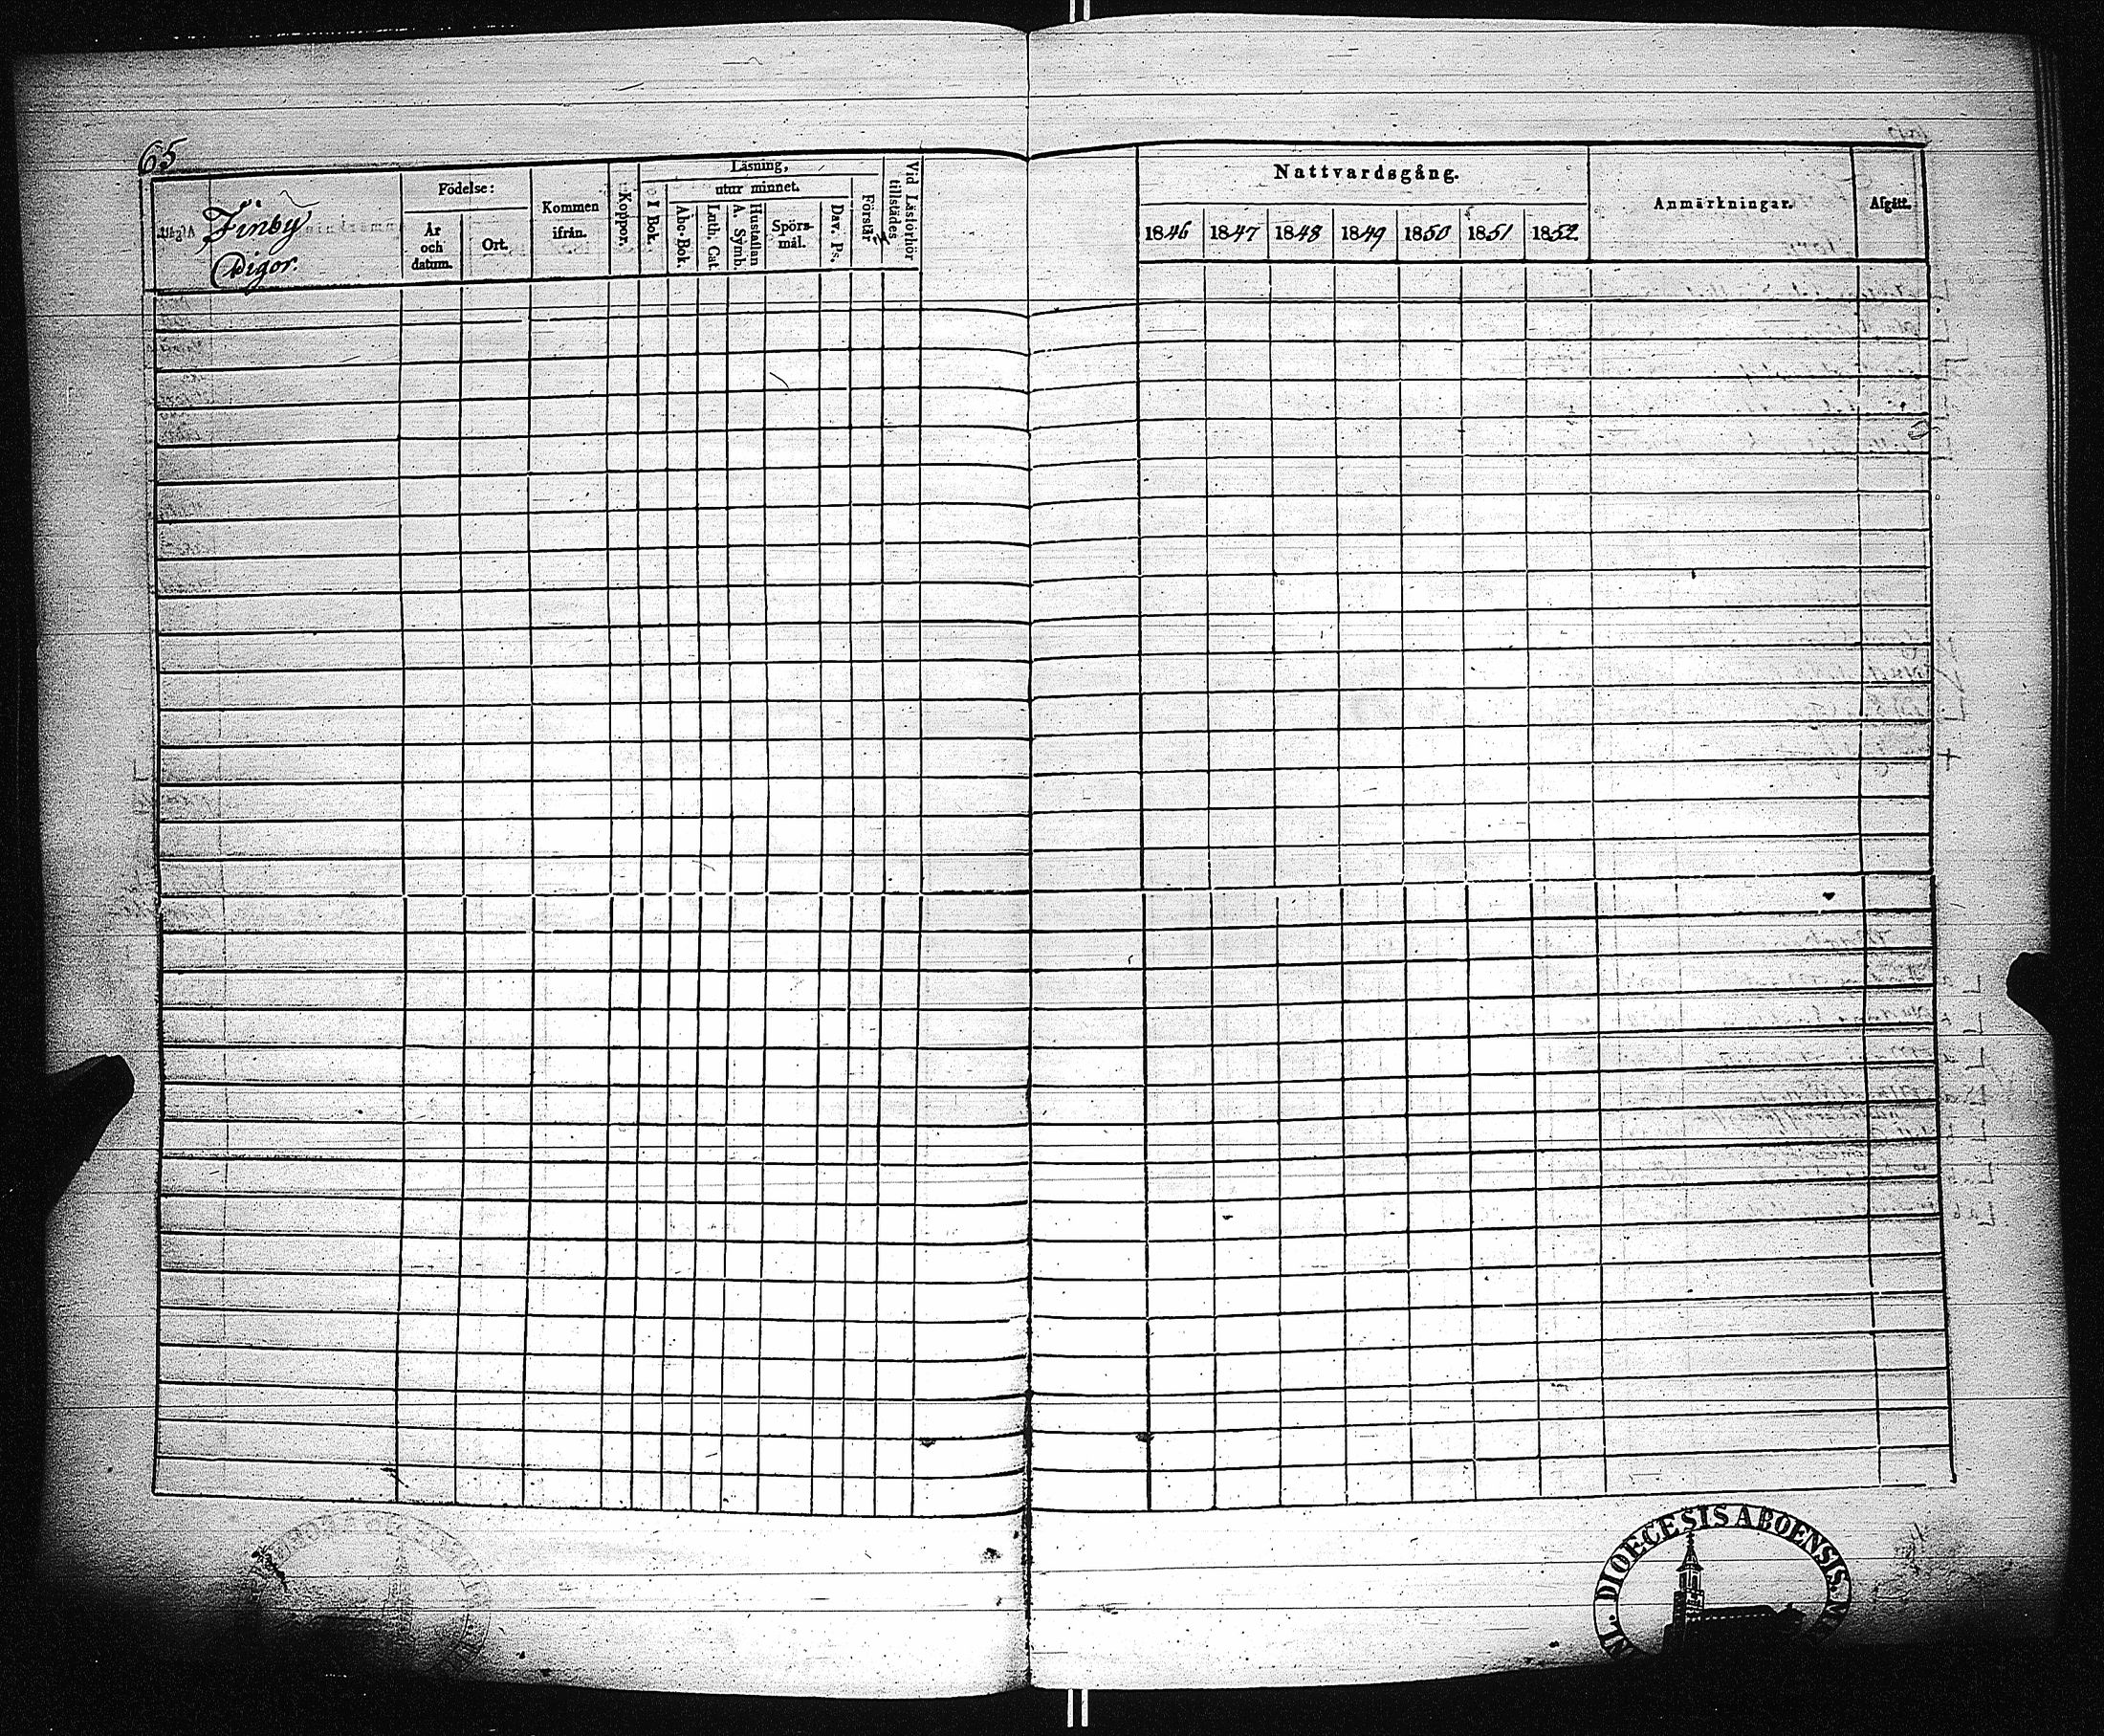 65
Finby
Digor.
Födelse:
År och datum.
Ort.
Kommen ifrån.
Koppor.
Läsning,
I Bok.
utur minnet.
Abc-Bok.
Luth. Cat.
Hustaflan A. Symb.
Spörs-mål.
Dav. Ps.
Förstår
Vid Läsförhör tillstädes
Nattvardsgång.
1846 1847 1848 1849 1850 1851 1852
Anmärkningar.
Afgått.
DIOECESIS ABOENSIS.